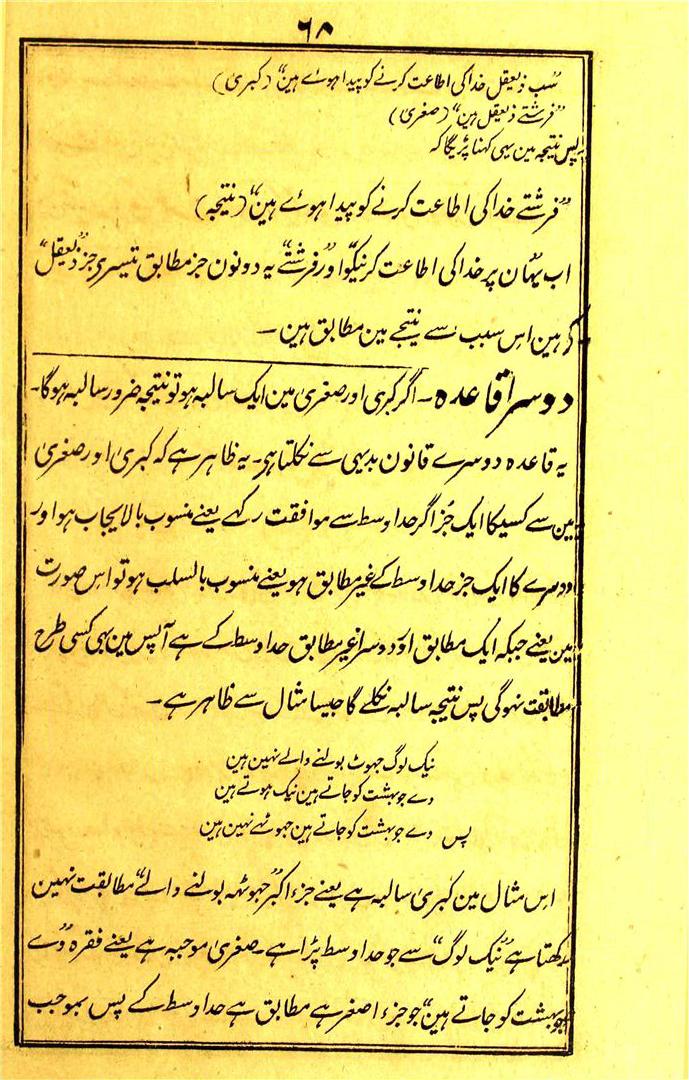 ۶۸
"سب ذیعقل خدا کی اطاعت کرنے کو پیدا ہوے ہین" (کبریٰ)
"فرشتے ذیعقل ہین" (صغریٰ)
پس نتیجہ مین یہی کہنا پڑیگا کہ
"فرشتے خدا کی اطاعت کرنے کو پیدا ہوے ہین" (نتیجہ)
اب یہان پر خدا کی اطاعت کرنیکو" اور "فرشتے" یہ دونون جز مطابق تیسری جز "ذیعقل"
کے ہین اس سبب سے نتیجے مین مطابق ہین ۔
دوسرا قاعدہ ۔ اگر کبری اور صغری مین ایک سالبہ ہو تو نتیجہ ضرور سالبہ ہوگا۔
یہ قاعدہ دوسرے قانون بدیہی سے نکلتا ہی۔ یہ ظاہر ہے کہ کبریٰ اور صغریٰ
مین سے کسیکا ایک جُز اگر حد اوسط سے موافقت رکہے یعنے منسوب بالایجاب ہو اور
دوسرے کا ایک جز حد اوسط کے غیر مطابق ہو یعنے منسوب بالسلب ہو تو اس صورت
مین یعنے جبکہ ایک مطابق اور دوسرا غیر مطابق حد اوسط کے ہے آپس مین بہی کسی طرح
مطابقت نہوگی پس نتیجہ سالبہ نکلے گا جیسا مثال سے ظاہر ہے ۔
نیک لوگ جہوٹ بولنے والے نہین ہین
وے جو بہشت کو جاتے ہین نیک ہوتے ہین
پس وے جو بہشت کو جاتے ہین جہوٹہے نہین ہین
اس مثال مین کبریٰ سالبہ ہے یعنے جزء اکبر "جہوٹہہ بولنے والے" مطابقت نہین
رکھتا ہے "نیک لوگ" سے جو حد اوسط پڑا ہے۔ صغریٰ موجبہ ہے یعنے فقرہ "وے
جو بہشت کو جاتے ہین" جو جزء اصغر ہے مطابق ہے حد اوسط کے پس بموجب